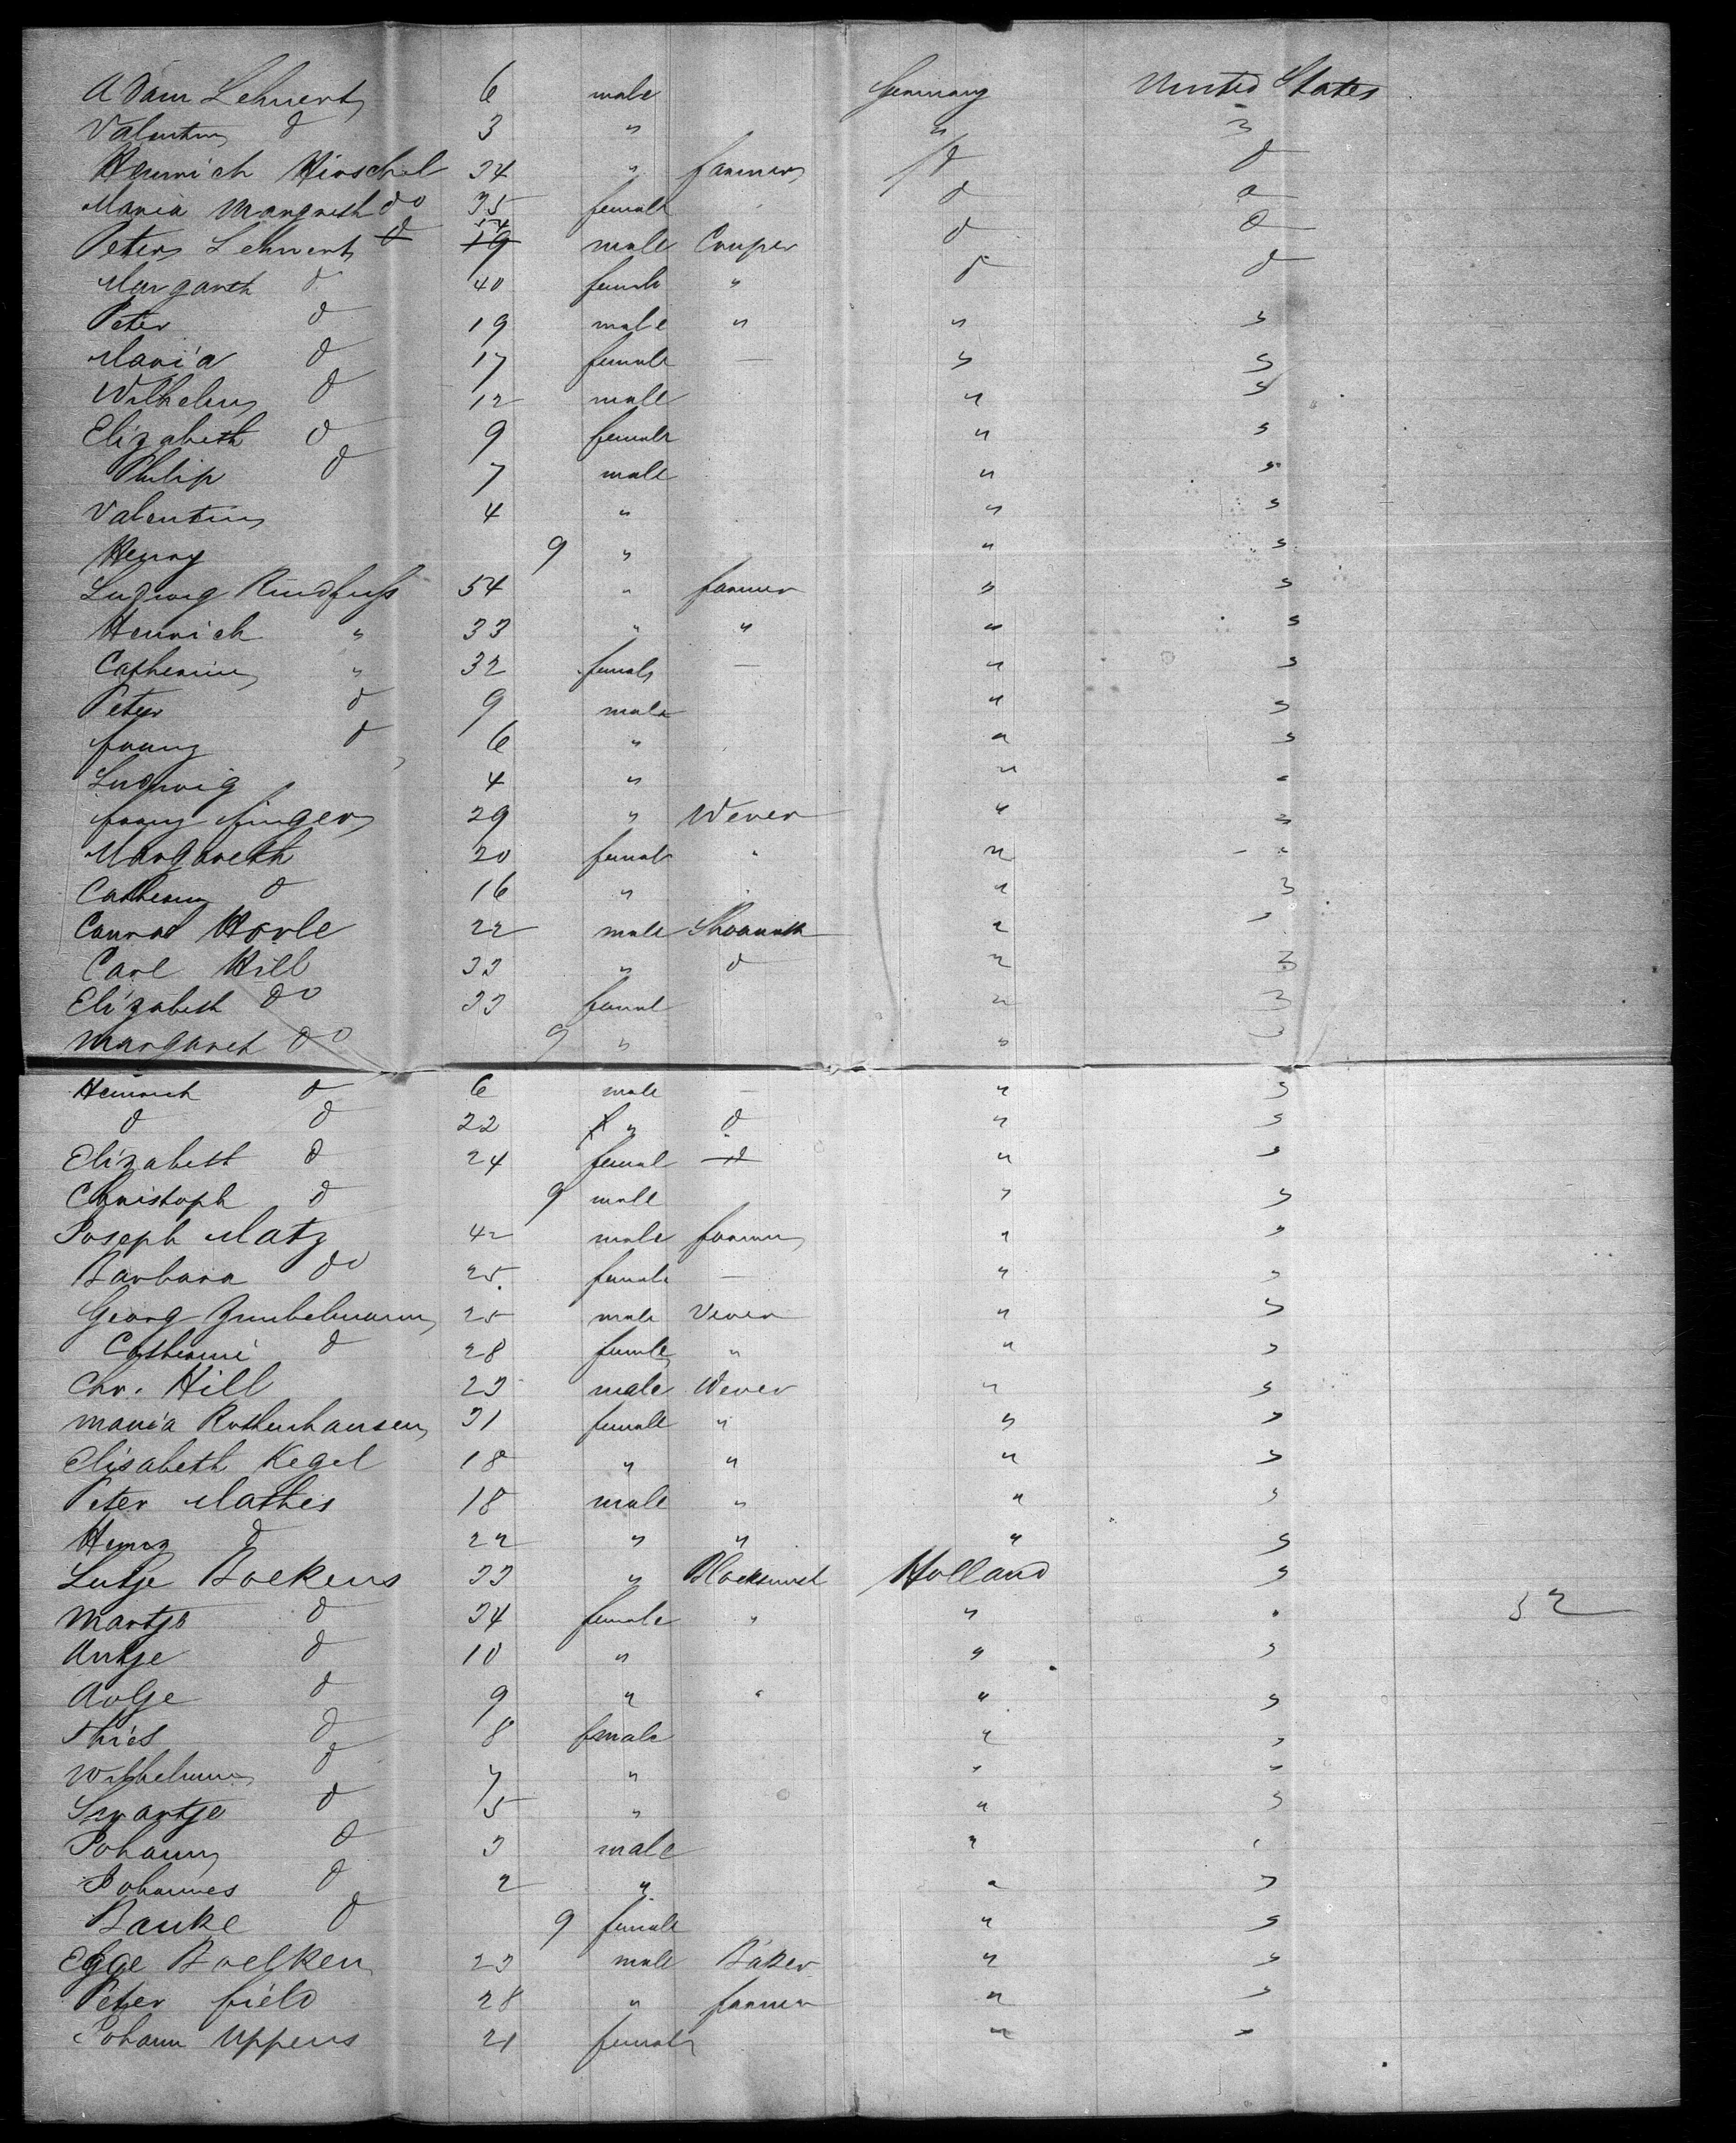 Adam Lehnert 6 male Germany United States
Valentin d 3 " " "
Heinrich Hirschel 34 " farmer d d
Maria Margreth do 35 female d d
Peter Lehnert 54 male Couper d d
Margareth d 40 female " d d
Peter d 19 male " " "
Maria d 17 female — " "
Wilhelm d 12 male " "
Elizabeth d 9 female " "
Philip d 7 male " "
Valentin 4 " " "
Henry 9 " " "
Ludwig Rindfuss 54 " farmer " "
Henrich " 33 " " " "
Catherine " 32 female — " "
Peter d 9 male " "
franz d 6 " " "
Ludwig 4 " " "
franz finger 29 " Wever " "
Margareth 20 female " " "
Cathern d 16 " " "
Conrad Horle 22 male " "
Carl Hill 33 " d " "
Elizabeth do 33 femal " "
Margaret do 9 " " "
Heinrich d 6 male — " "
d d 22 " d " "
Elizabeth d 24 femal " "
Christoph d 9 male " "
Joseph Matz 42 male farmer " "
Barbara do 25 female — " "
Georg 25 male Wever " "
Catherine d 28 female " " "
Chr. Hill 23 male Wever " "
Maria Rothenhausen 31 female " " "
Elisabeth Kegel 18 " " " "
Peter Mathes 18 male " " "
Henry d 22 " " " "
Lutje Boekens 33 " Holland "
Martje d 34 female " " " 52
Antje d 10 " " "
Aolje d 9 " " " "
Thies d 8 fmale " "
Wilhelm d 7 " " "
Swantje d 5 " " "
Johann d 3 male " "
Johannes d 2 " " "
Bauke d 9 female " "
Egge Boelken 23 male Baker " "
Peter field 28 " farmer " "
Johann Uppens 21 female " "